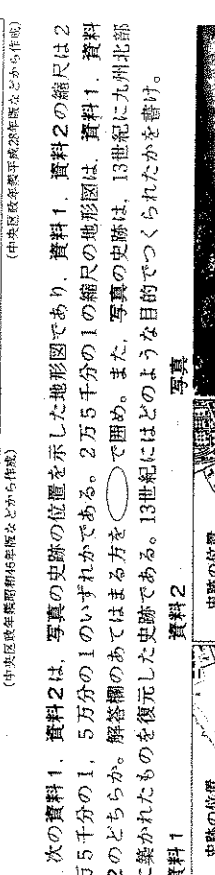 (中央区政年鑑昭和46年版などから作成)
(中央区政年鑑平成28年版などから作成)
次の資料1，資料2は，写真の史跡の位置を示した地形図であり，資料1，資料2の縮尺は2
万5千分の1，5万分の1のいずれかである。2万5千分の1の縮尺の地形図は，資料1，資料
2のどちらか。解答欄のあてはまる方を◯で囲め。また，写真の史跡は，13世紀に九州北部
に築かれたものを復元した史跡である。13世紀にはどのような目的でつくられたかを書け。
資料1
資料2
写真
史跡の位置
史跡の位置